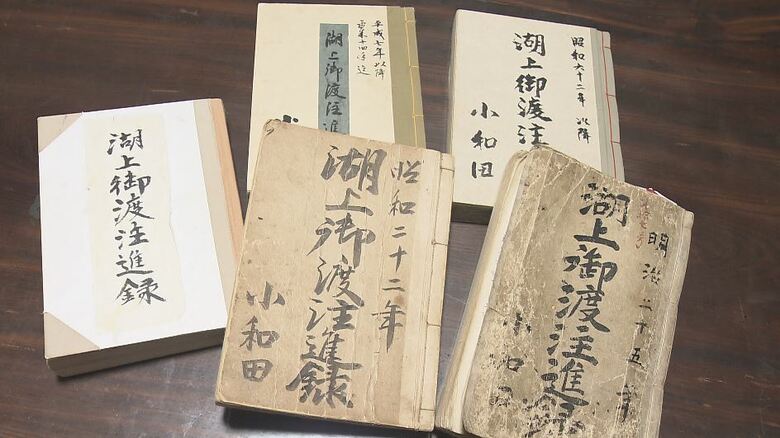 平成七年以降
湖上御渡注進
小
昭和六十二年以降
湖上御渡注
小和田
湖上御渡注進録
昭和二十二年
湖上御渡注進録
小和田
明治二十五年
湖上御渡注進録
小和田